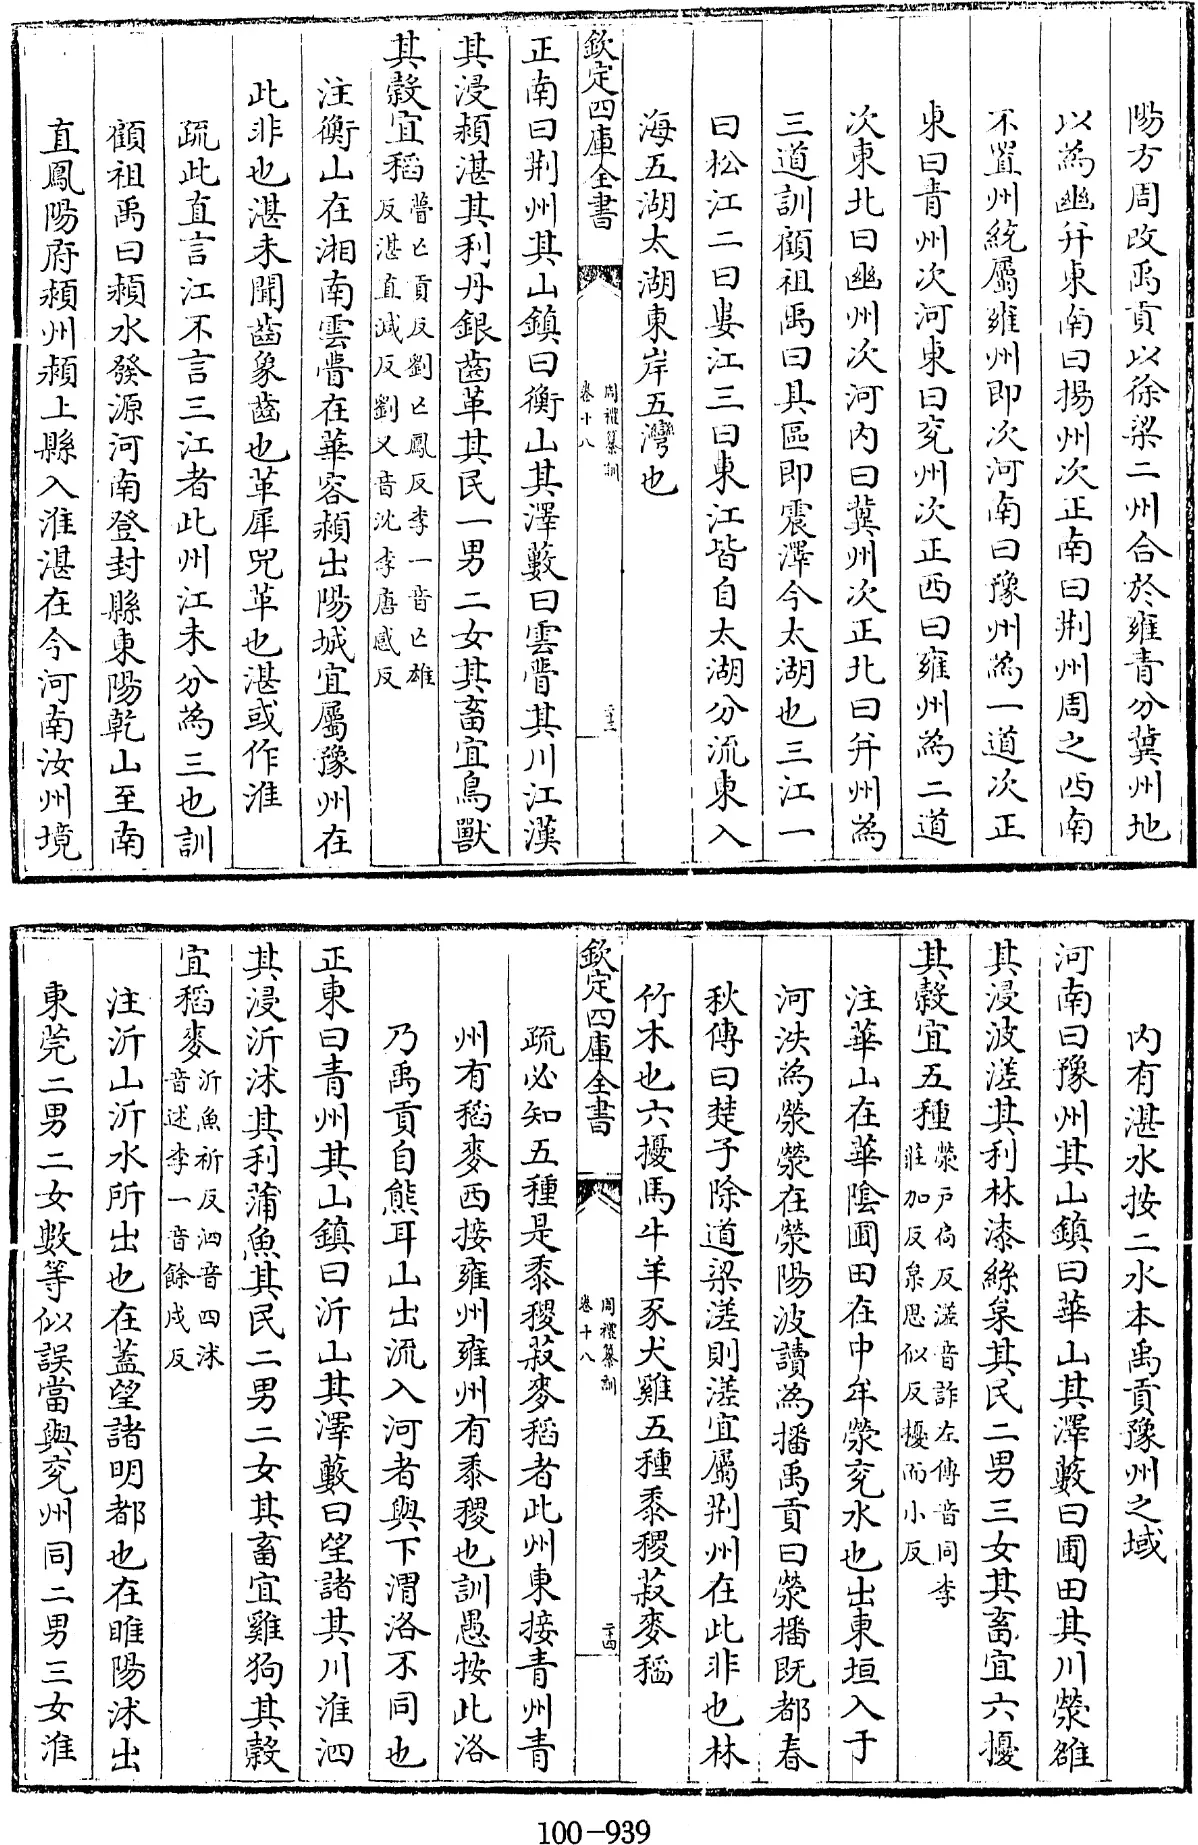 陽方周改禹貢以徐梁二州合於雍青分冀州地
以為幽并東南曰揚州次正南曰荆州周之西南
不置州統屬雍州即次河南曰豫州為一道次正
東曰青州次河東曰兖州次正西曰雍州為二道
次東北曰幽州次河内曰冀州次正北曰并州為
三道訓顧祖禹曰具區即震澤今太湖也三江一
曰松江二曰婁江三曰東江皆自太湖分流東入
海五湖太湖東岸五灣也
欽定四庫全書
周禮纂訓
卷十八
二十三
正南曰荆州其山鎮曰衡山其澤藪曰雲瞢其川江漢
其浸潁湛其利丹銀齒革其民一男二女其畜宜鳥獸
其穀宜稻
瞢亡貢反劉亡鳳反李一音亡雄
反湛直減反劉又音沈李唐感反
注衡山在湘南雲瞢在華容潁出陽城宜屬豫州在
此非也湛未聞齒象齒也革犀兕革也湛或作淮
疏此直言江不言三江者此州江未分為三也訓
顧祖禹曰潁水發源河南登封縣東陽乾山至南
直鳳陽府潁州潁上縣入淮湛在今河南汝州境
内有湛水按二水本禹貢豫州之域
河南曰豫州其山鎮曰華山其澤藪曰圃田其川滎雒
其浸波溠其利林漆絲枲其民二男三女其畜宜六擾
其穀宜五種
滎户扃反溠音詐左傳音同李
莊加反枲思似反擾而小反
注華山在華陰圃田在中牟滎兖水也出東垣入于
河泆為滎滎在滎陽波讀為播禹貢曰滎播既都春
秋傳曰楚子除道梁溠則溠宜屬荆州在此非也林
竹木也六擾馬牛羊豕犬雞五種黍稷菽麥稻
欽定四庫全書
周禮纂訓
卷十八
二十四
疏必知五種是黍稷菽麥稻者此州東接青州青
州有稻麥西接雍州雍州有黍稷也訓愚按此洛
乃禹貢自熊耳山出流入河者與下渭洛不同也
正東曰青州其山鎮曰沂山其澤藪曰望諸其川淮泗
其浸沂沭其利蒲魚其民二男二女其畜宜雞狗其穀
宜稻麥
沂魚祈反泗音四沭
音述李一音餘戍反
注沂山沂水所出也在蓋望諸明都也在睢陽沭出
東莞二男二女數等似誤當與兖州同二男三女淮
100-939